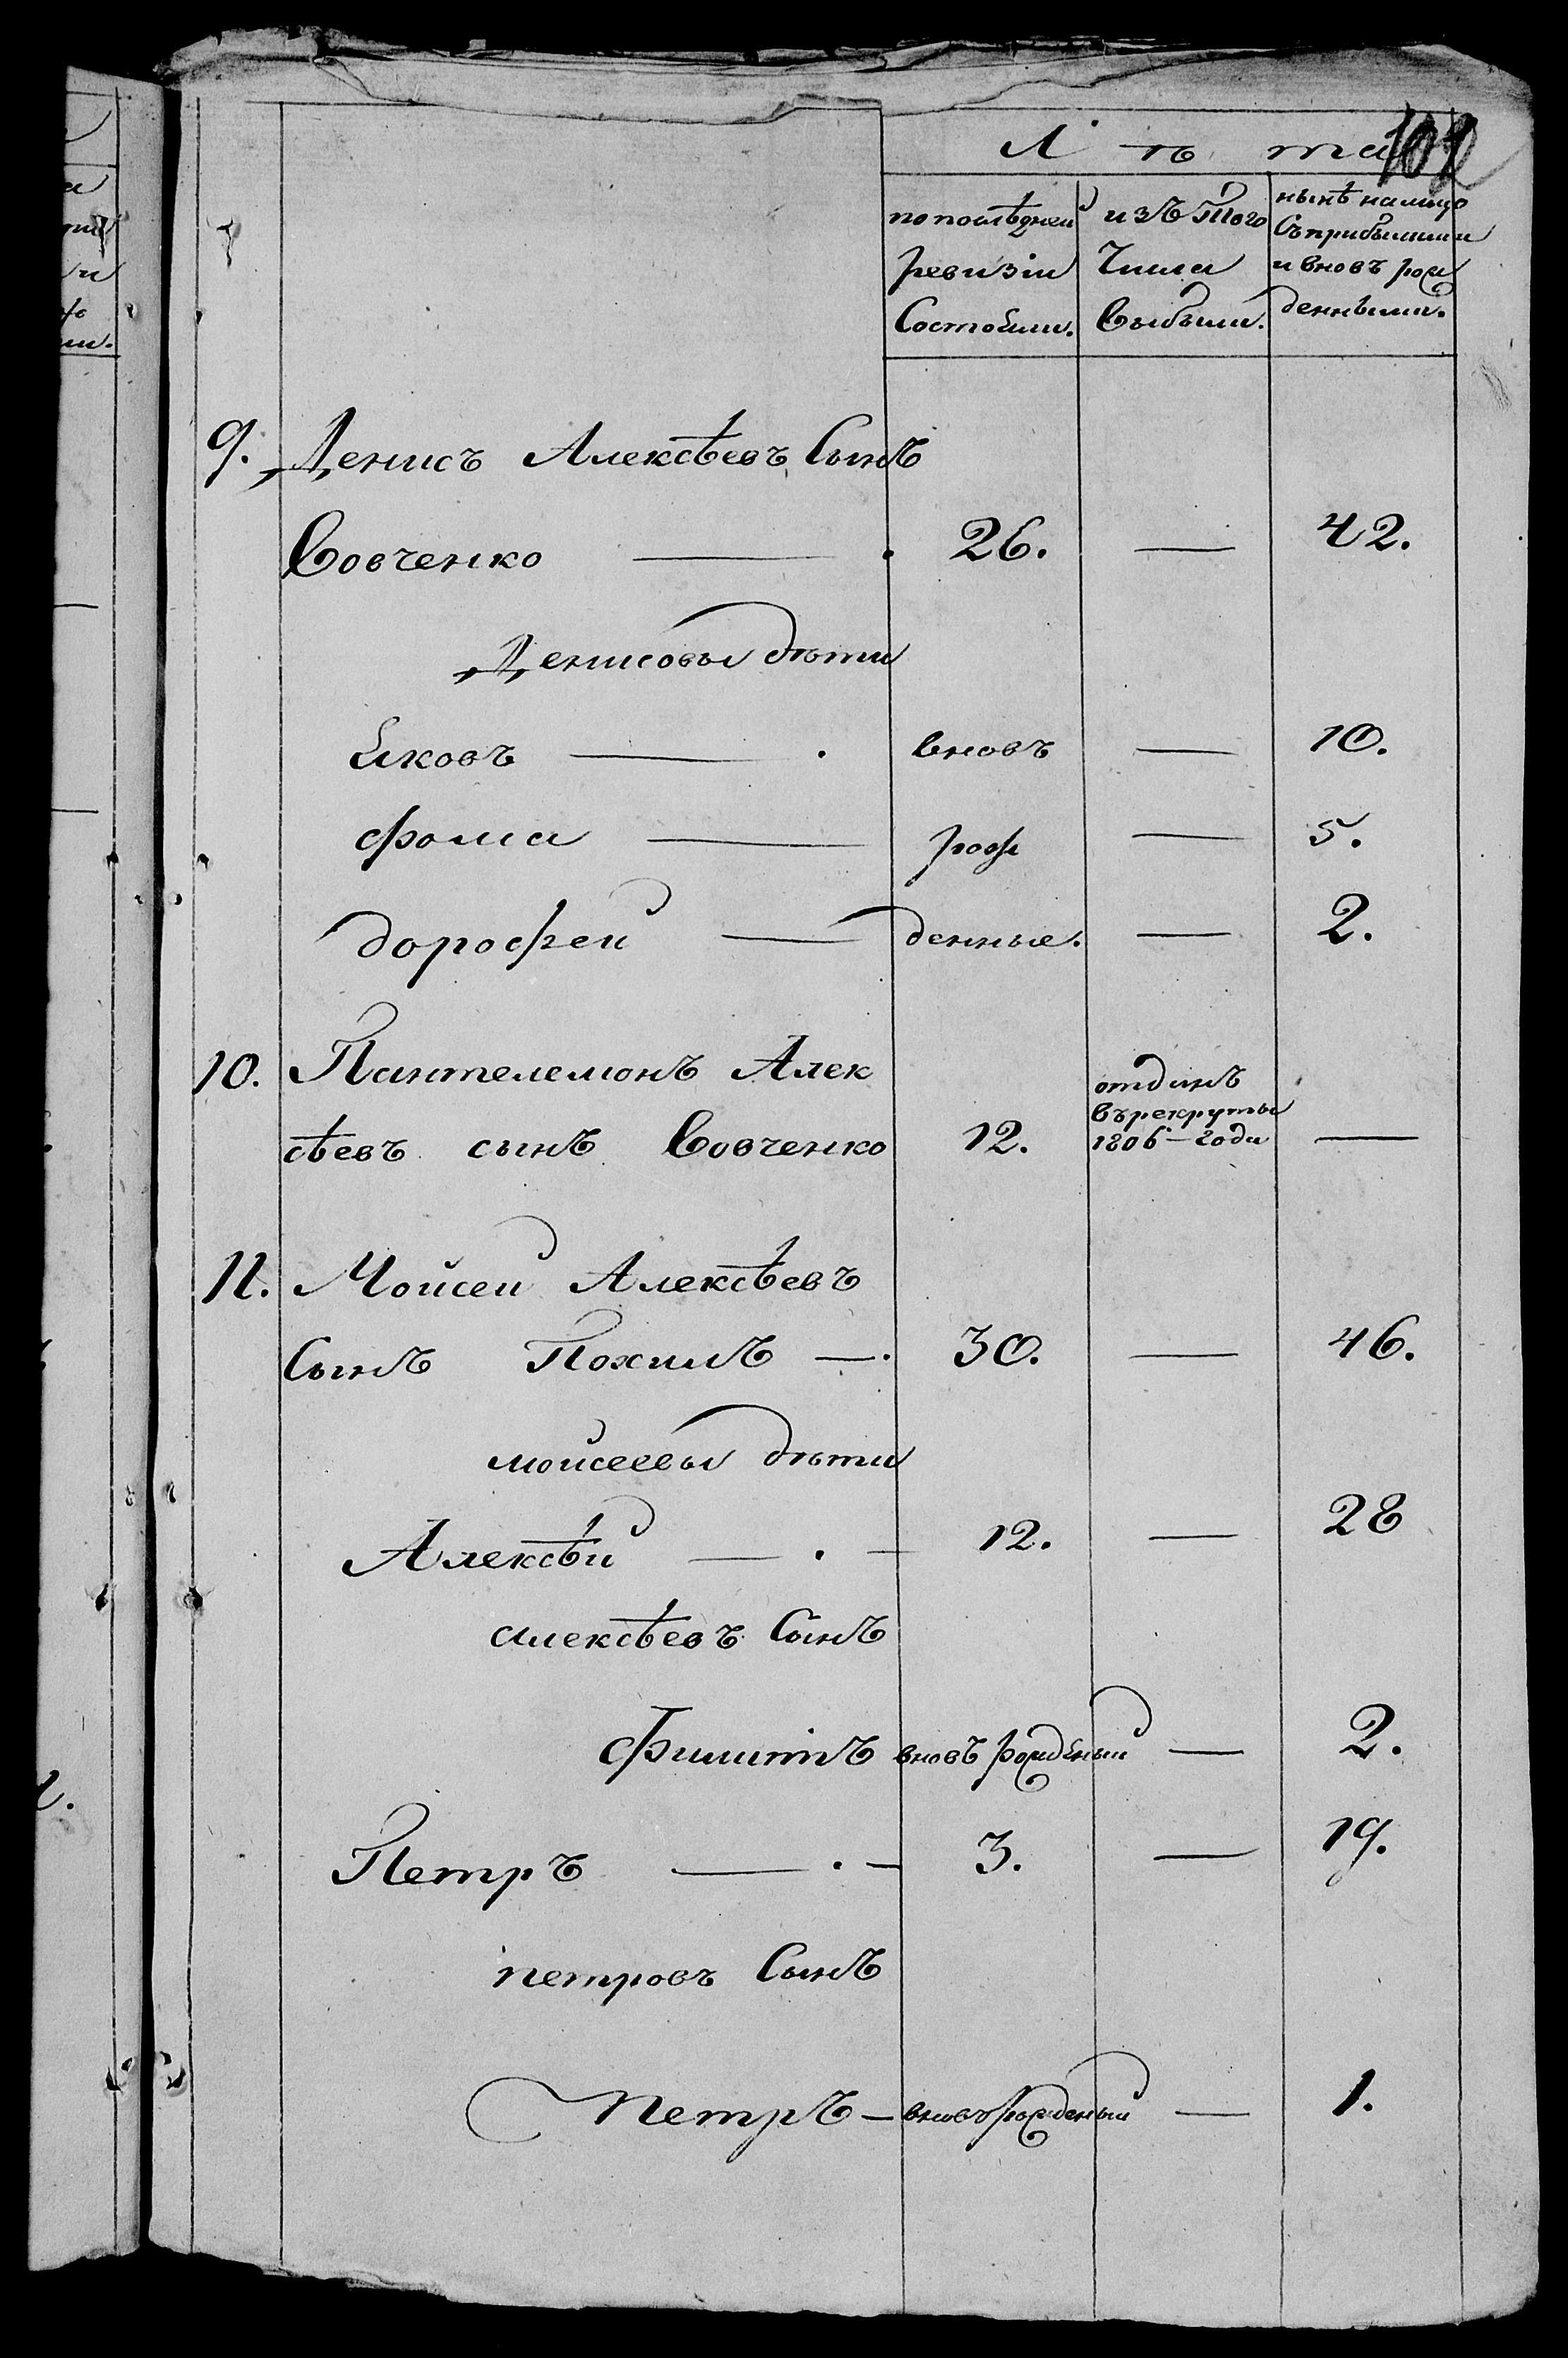 Лѣта
102
по последней изъ того нынѣ налицо
ревизіи числа съ прибылыми
состояли. выбыли. и вновь рож
денными.
9. Денисъ Алексѣевъ Сынъ
Вовченко 26. — 42.
Денисовы дѣти
Яковъ — вновь — 10.
Фома — рож — 5.
Дорофей — денные. — 2.
10. Пантелемонъ Алек
сѣевъ сынъ Вовченко 12. отданъ въ рекруты 1806 года —
11. Мойсей Алексѣевъ
Сынъ Похилъ — 30. — 46.
мойсеевы дѣти
Алексѣй — 12. — 28
алексѣевъ Сынъ
Филипъ вновь рожденый — 2.
Петръ — 3. — 19.
петровъ Сынъ
Петръ — вновь рожденый — 1.